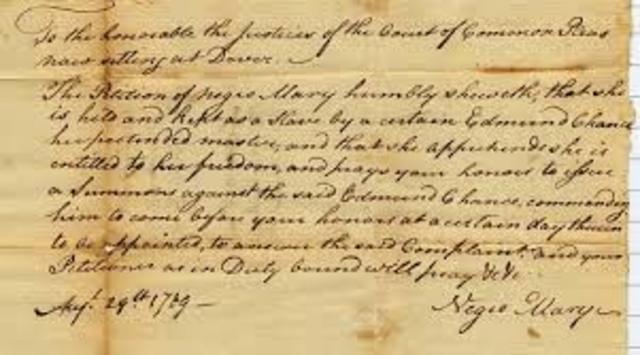 To the honorable the Justices of the Court of Common Pleas
now sitting at Dover.
The Petition of Negro Mary humbly sheweth, that she
is held and kept as a Slave by a certain Edmund Chance
her pretended master, and that she apprehends she is
entitled to her freedom, and prays your honors to issue
a Summons against the said Edmund Chance, commanding
him to come before your honors at a certain day therein
to be appointed, to answer the said Complaint. and your
Petitioner as in Duty bound will pray &c.
29th 1789 —
Negro Mary